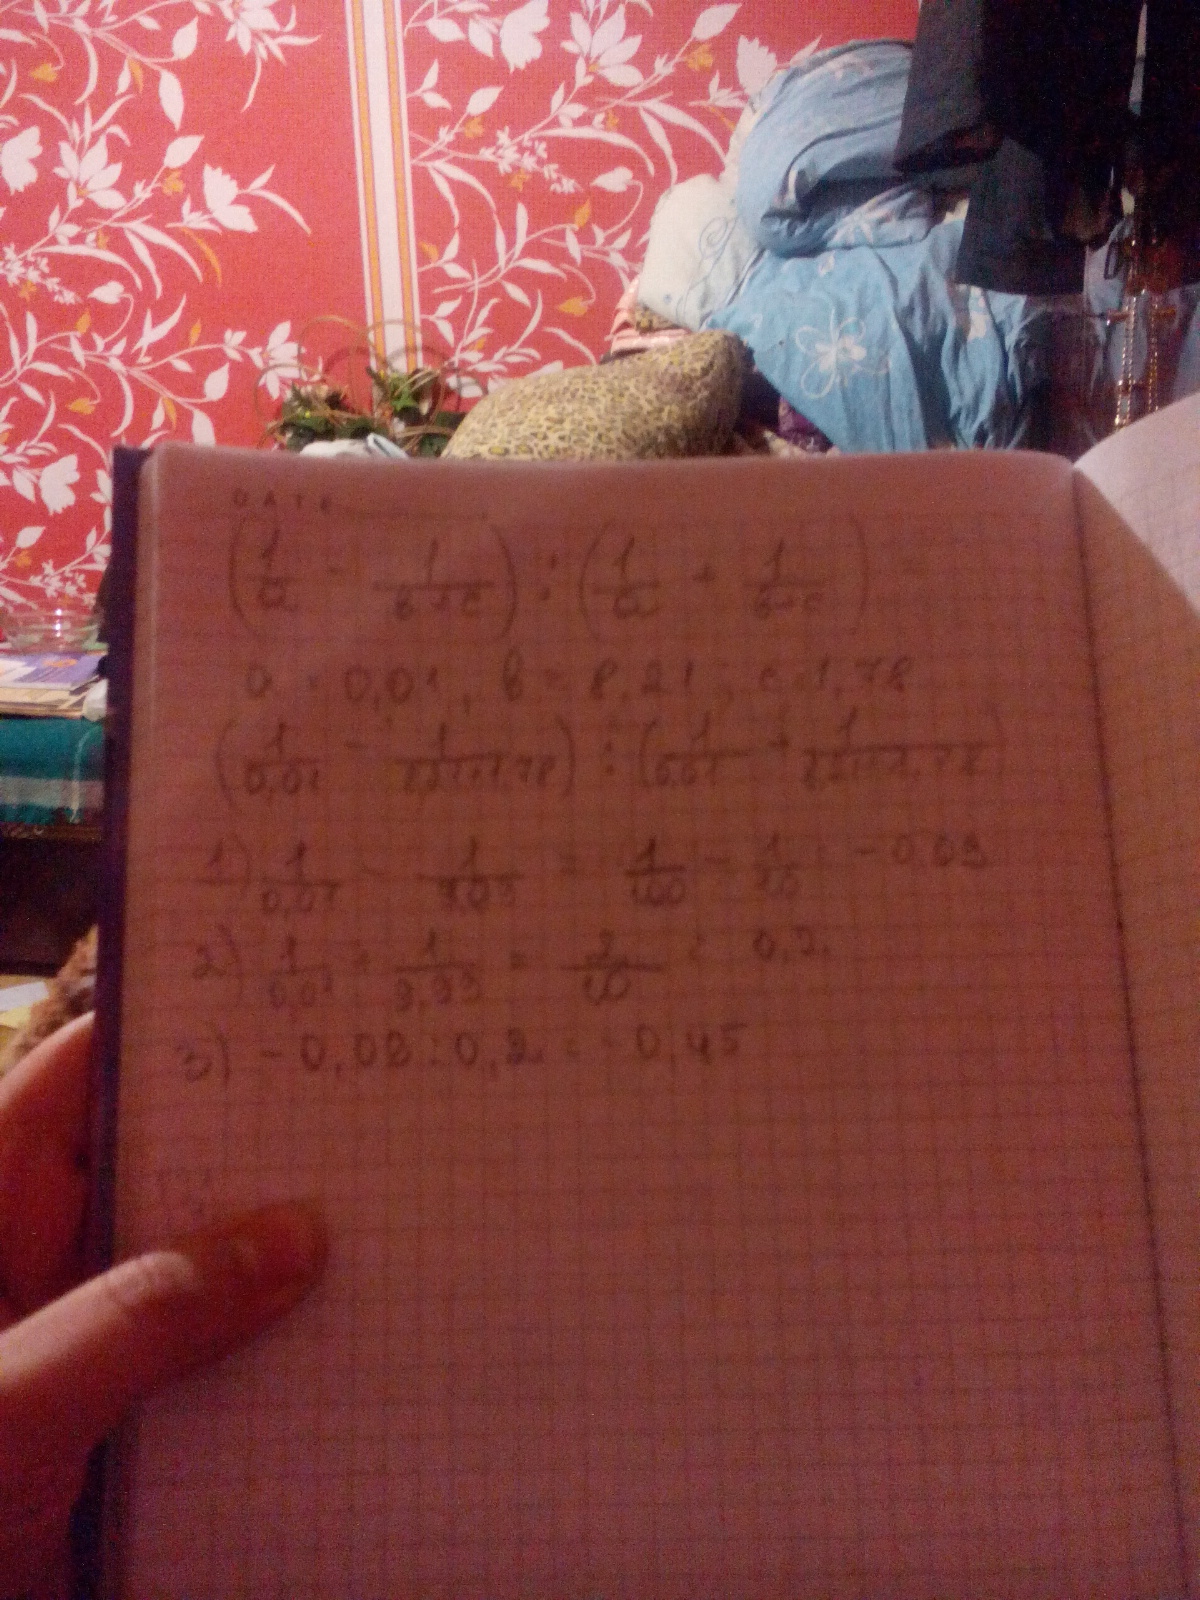 DATE
(1/a - 1/b+c) : (1/a + 1/b+c)
a = 0,01, b = 8,21, c = 1,78
(1/0,01 - 1/8,21+1,78) : (1/0,01 + 1/8,21+1,78)
1) 1/0,01 - 1/9,99 = 1/100 - 1/10 = -0,09
2) 1/0,01 + 1/9,99 = 2/10 = 0,2
3) -0,09 : 0,2 = -0,45